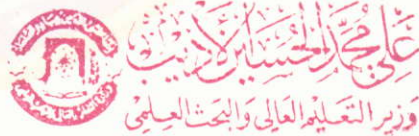 علي محمد الحسين الأديب
وزير التعليم العالي والبحث العلمي